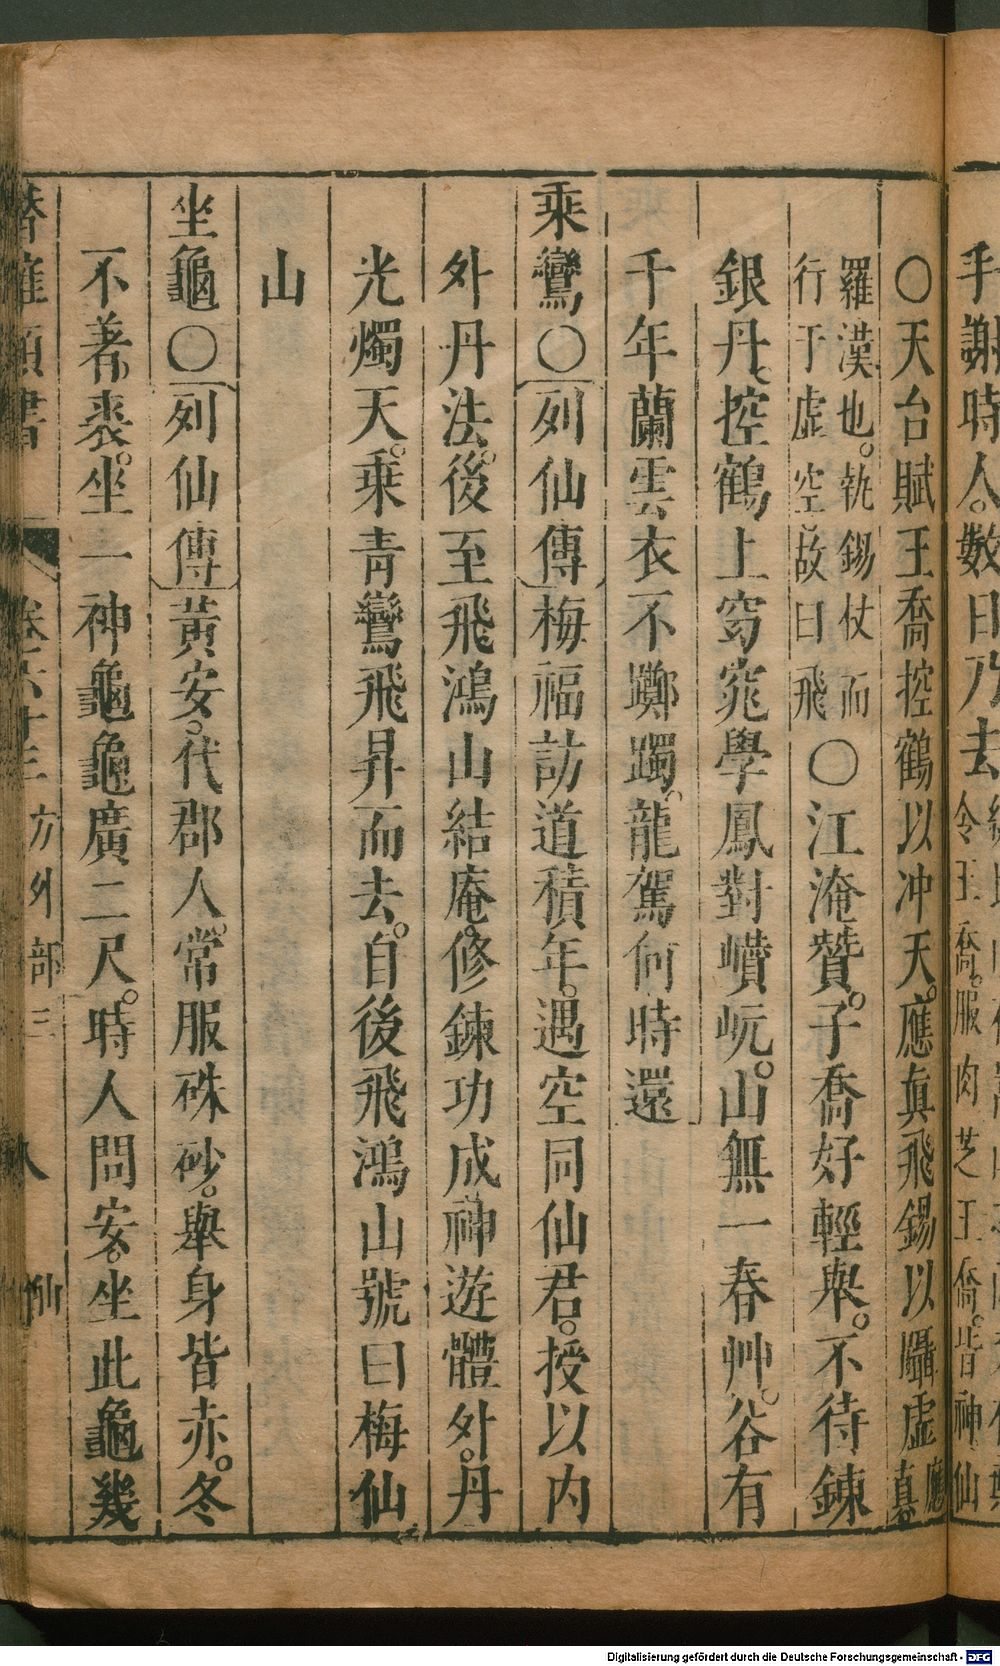 手謝時人。數日乃去
令王喬。服肉芝王僑。皆神仙
〇天台賦王喬控鶴以冲天。應眞飛錫以躡虛應眞
羅漢也。執錫杖而
行于虛空故曰飛
〇江淹贊。子喬好輕舉。不待鍊
銀丹。控鶴上窈窕學鳳對巑岏。山無一春艸。谷有
千年蘭雲衣不躑躅。龍駕何時還
乘鸞〇列仙傳梅福訪道積年。遇空同仙君。授以內
外丹法。後至飛鴻山結庵。修鍊功成神遊體外。丹
光燭天。乘青鸞飛昇而去。自後飛鴻山號曰梅仙
山
坐龜〇列仙傳黃安。代郡人。常服硃砂。舉身皆赤。冬
不著裘。坐一神龜龜廣二尺。時人問安。坐此龜幾
卷六十三 方外部三 仙
Digitalisierung gefördert durch die Deutsche Forschungsgemeinschaft - DFG